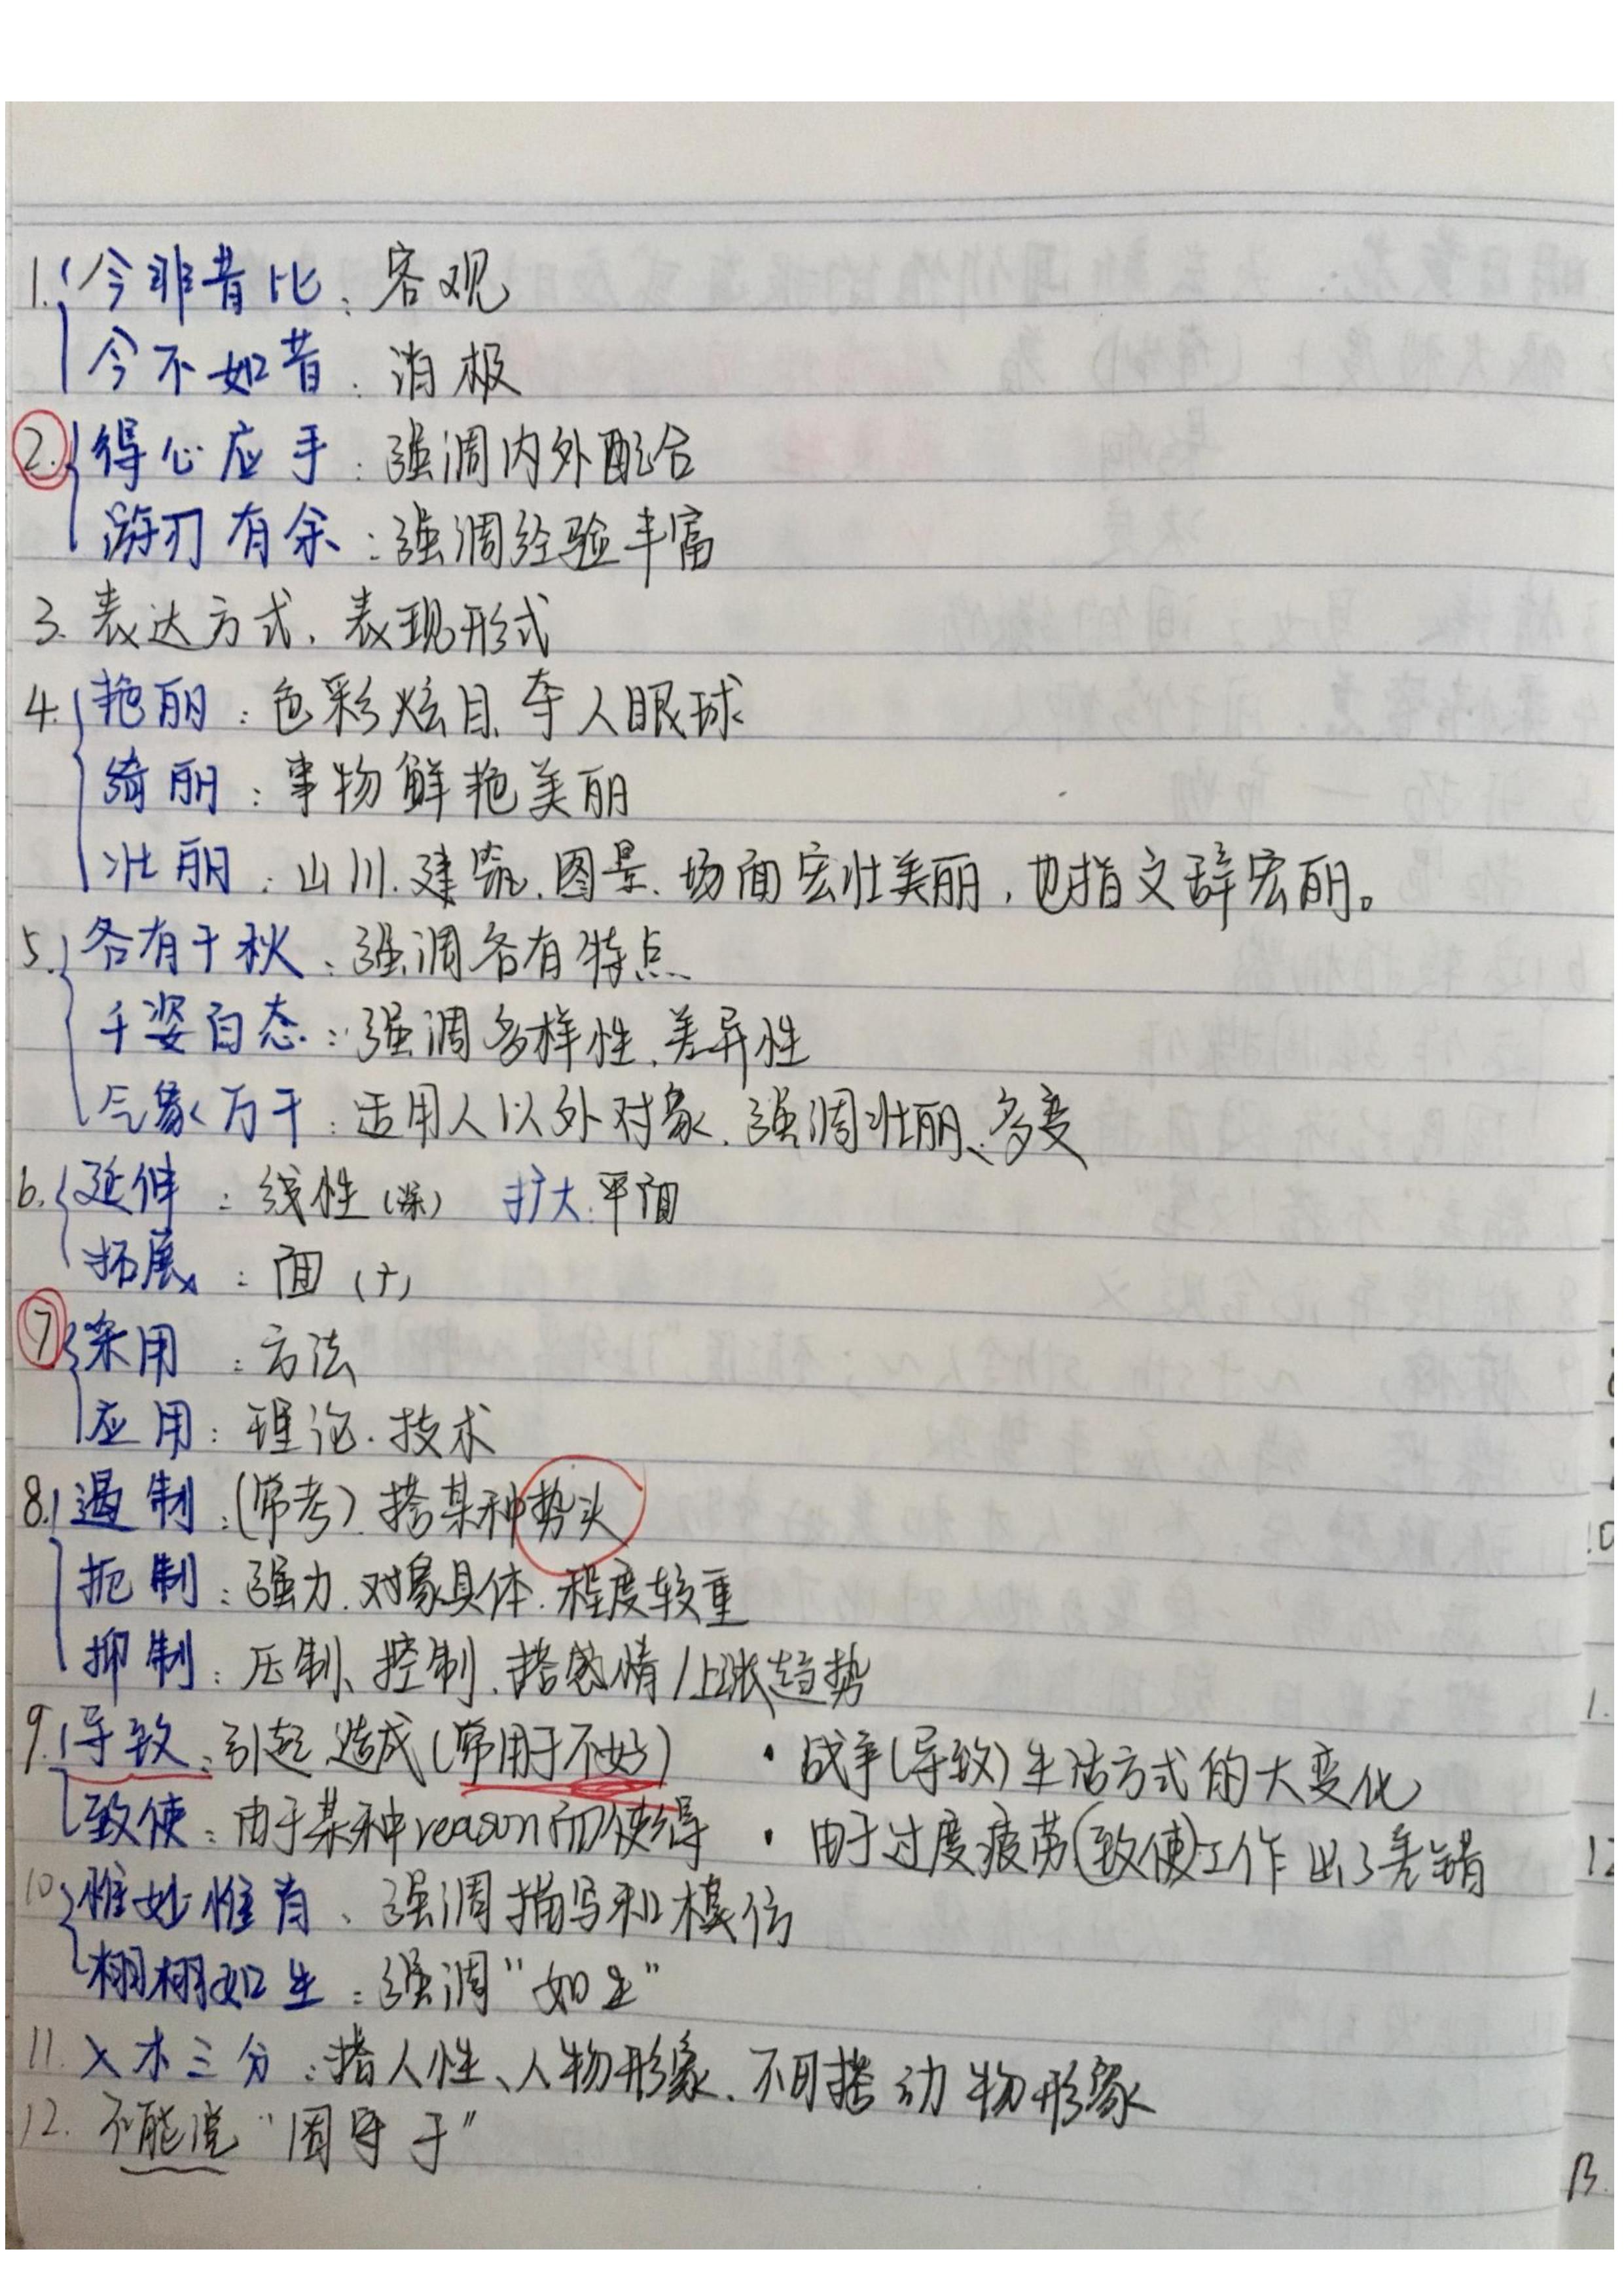 1. 今非昔比：客观
今不如昔：消极
2. 得心应手：强调内外配合
游刃有余：强调经验丰富
3. 表达方式、表现形式
4. 艳丽：色彩炫目、夺人眼球
绮丽：事物鲜艳美丽
壮丽：山川、建筑、图景、场面宏壮美丽，也指文辞宏丽。
5. 各有千秋：强调各有特点
千姿百态：强调多样性、差异性
气象万千：适用人以外对象、强调壮丽、多变
6. 延伸：线性（深） 扩大：平面
拓展：面（广）
7. 采用：方法
应用：理论、技术
8. 遏制：（常考）搭某种势头
扼制：强力、对象具体、程度较重
抑制：压制、控制、搭感情/上涨趋势
9. 导致：引起 造成（常用于不好） ·战争（导致）生活方式的大变化
致使：由于某种reason而使得 ·由于过度疲劳（致使）工作出了差错
10. 惟妙惟肖：强调描写和模仿
栩栩如生：强调“如生”
11. 入木三分：搭人性、人物形象、不可搭动物形象
12. 不能说“固守于”
10
1.
12
13.